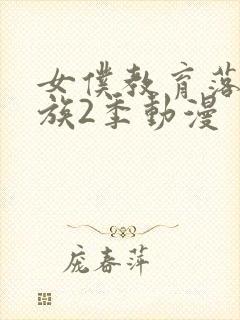 女僕教育落
族2季動漫
庞春萍